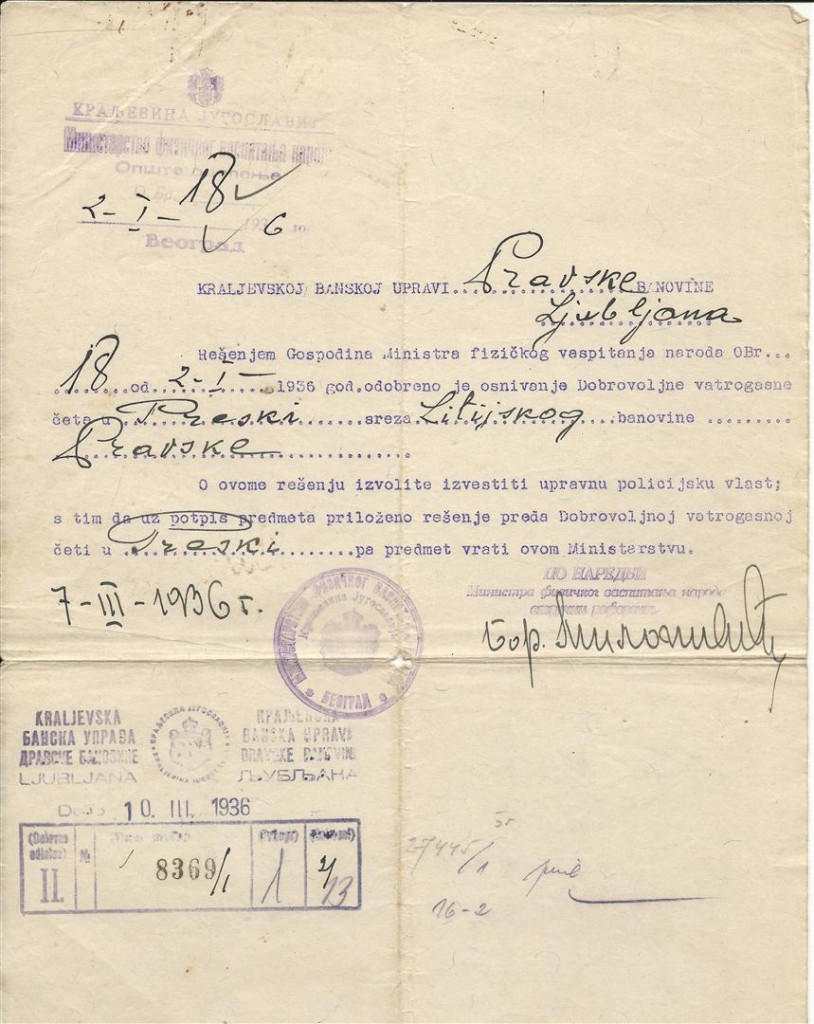 КРАЉЕВИНА ЈУГОСЛАВИЈА
Министарство физичког васпитања народа
Опште одељење
О.Бр. 18
2-I- 1936 год
Београд
KRALJEVSKOJ BANSKOJ UPRAVI....Dravske BANOVINE
Ljubljana
Rešenjem Gospodina Ministra fizičkog vaspitanja naroda OBr...
18 od 2-I- 1936 god.odobreno je osnivanje Dobrovoljne vatrogasne
čete u Preski sreza Litijskog banovine .........
Dravske
O ovome rešenju izvolite izvestiti upravnu policijsku vlast;
s tim da uz potpis predmeta priloženo rešenje preda Dobrovoljnoj vatrogasnoj
četi u Preski pa predmet vrati ovom Ministarstvu.
ПО НАРЕДБИ
Министра физичког васпитања народа
7-III-1936 г.
МИНИСТАРСТВО ФИЗИЧКОГ ВАСПИТАЊА НАРОДА
Краљевина Југославија
БЕОГРАД
KRALJEVSKA
БАНСКА УПРАВА
ДРАВСКЕ БАНОВИНЕ
LJUBLJANA
КРАЉЕВСКА
BANSKA UPRAVA
DRAVSKE BANOVINE
ЉУБЉАНА
Došlo 10. III. 1936
II.
№
8369/1
1
2/13
27445/1
16-2